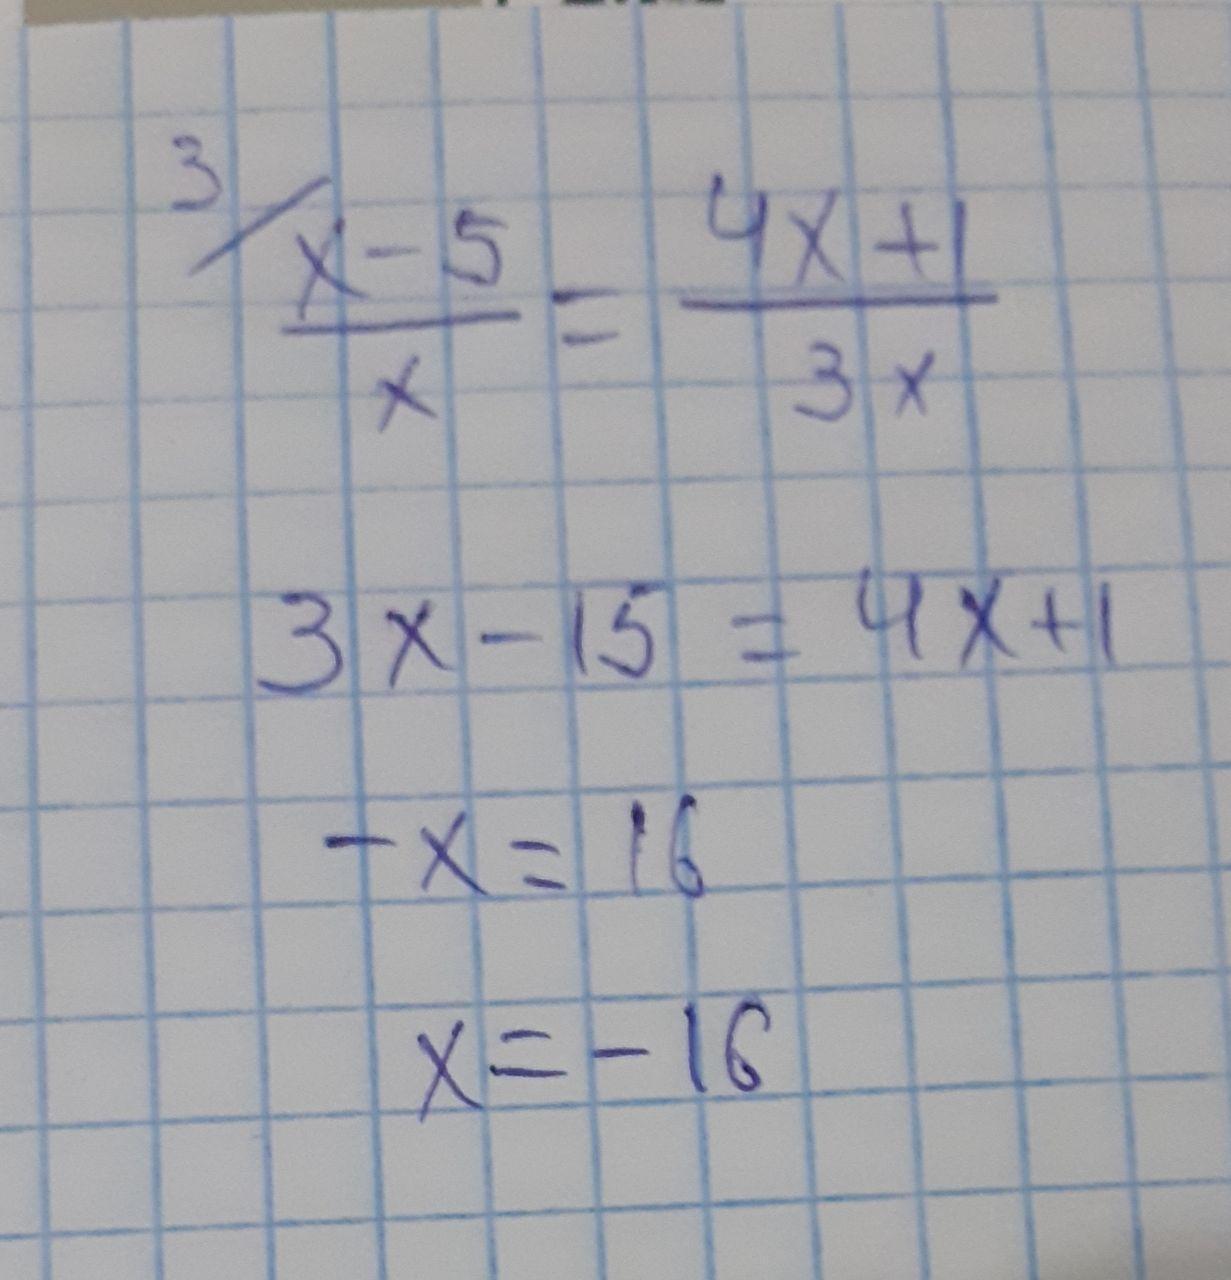 3/ (x-5)/x = (4x+1)/(3x)
3x-15 = 4x+1
-x = 16
x = -16